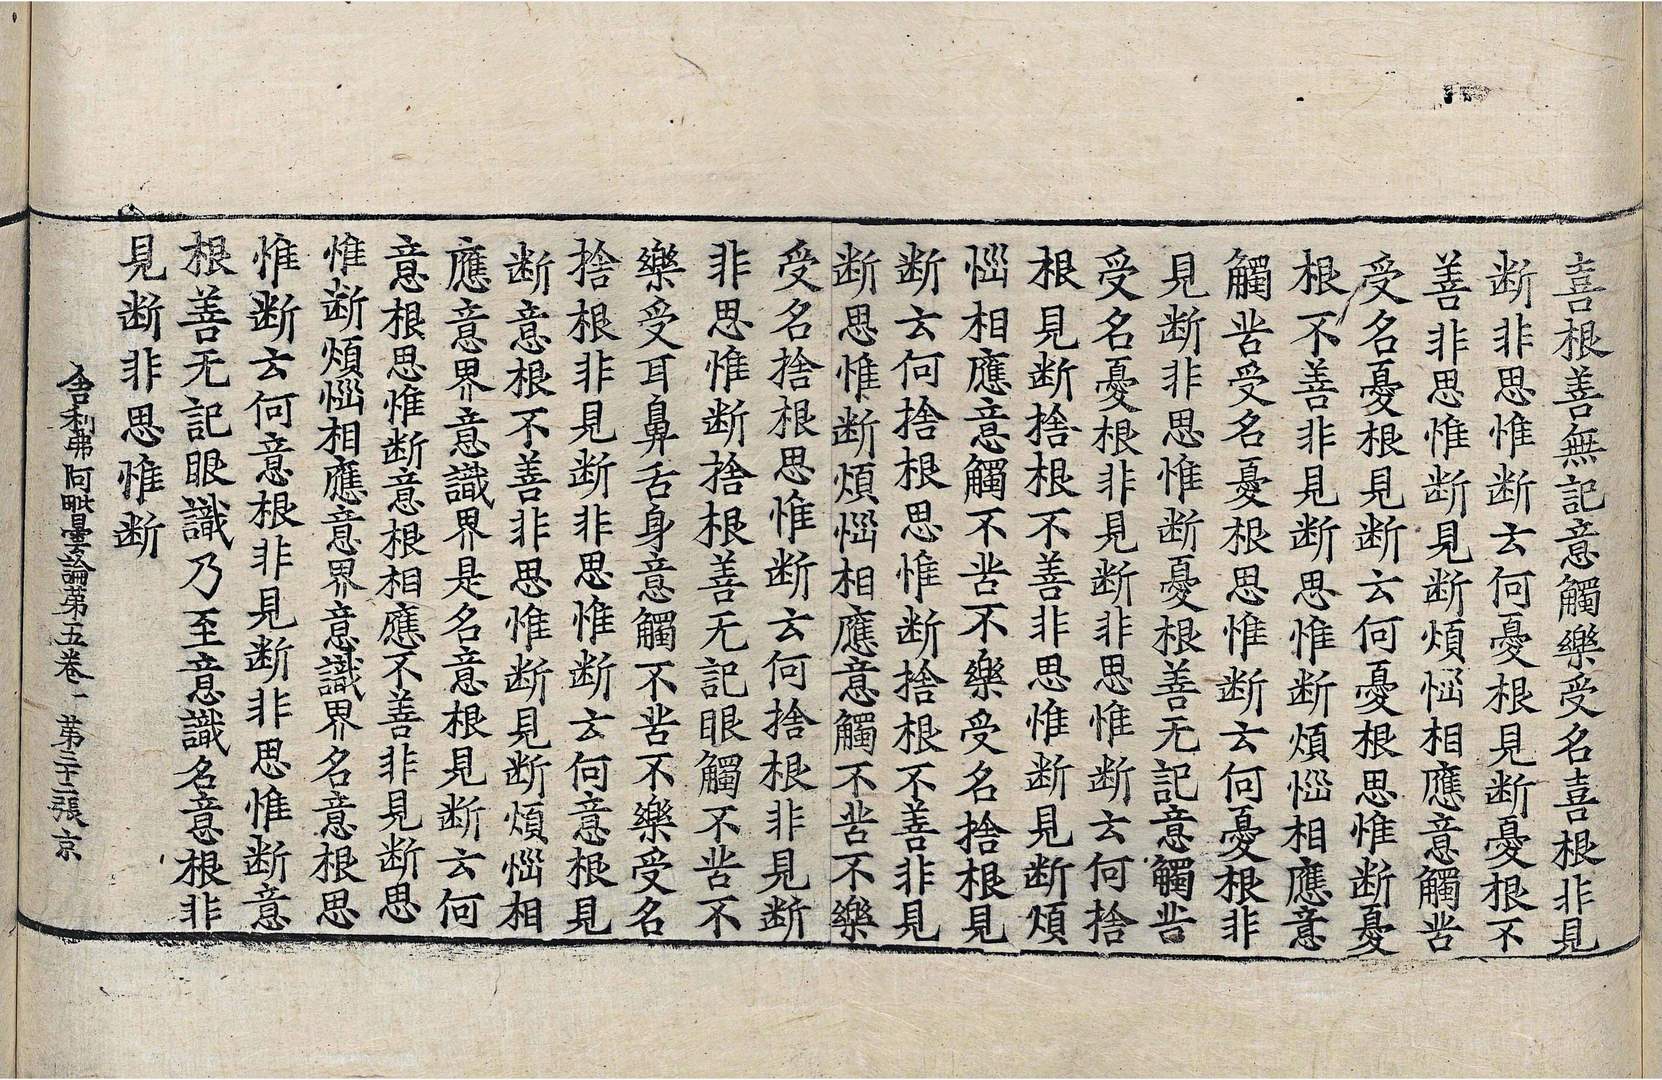 喜根善無記意觸樂受名喜根非見
断非思惟断云何憂根見断憂根不
善非思惟断見断煩惱相應意觸苦
受名憂根見断云何憂根思惟断憂
根不善非見断思惟断煩惱相應意
觸苦受名憂根思惟断云何憂根非
見断非思惟断憂根善无記意觸苦
受名憂根非見断非思惟断云何捨
根見断捨根不善非思惟断見断煩
惱相應意觸不苦不樂受名捨根見
断云何捨根思惟断捨根不善非見
断思惟断煩惱相應意觸不苦不樂
受名捨根思惟断云何捨根非見断
非思惟断捨根善无記眼觸不苦不
樂受耳鼻舌身意觸不苦不樂受名
捨根非見断非思惟断云何意根見
断意根不善非思惟断見断煩惱相
應意界意識界是名意根見断云何
意根思惟断意根相應不善非見断思
惟断煩惱相應意界意識界名意根思
惟断云何意根非見断非思惟断意
根善无記眼識乃至意識名意根非
見断非思惟断
舍利弗阿毗曇論第五卷 第二十二張 京